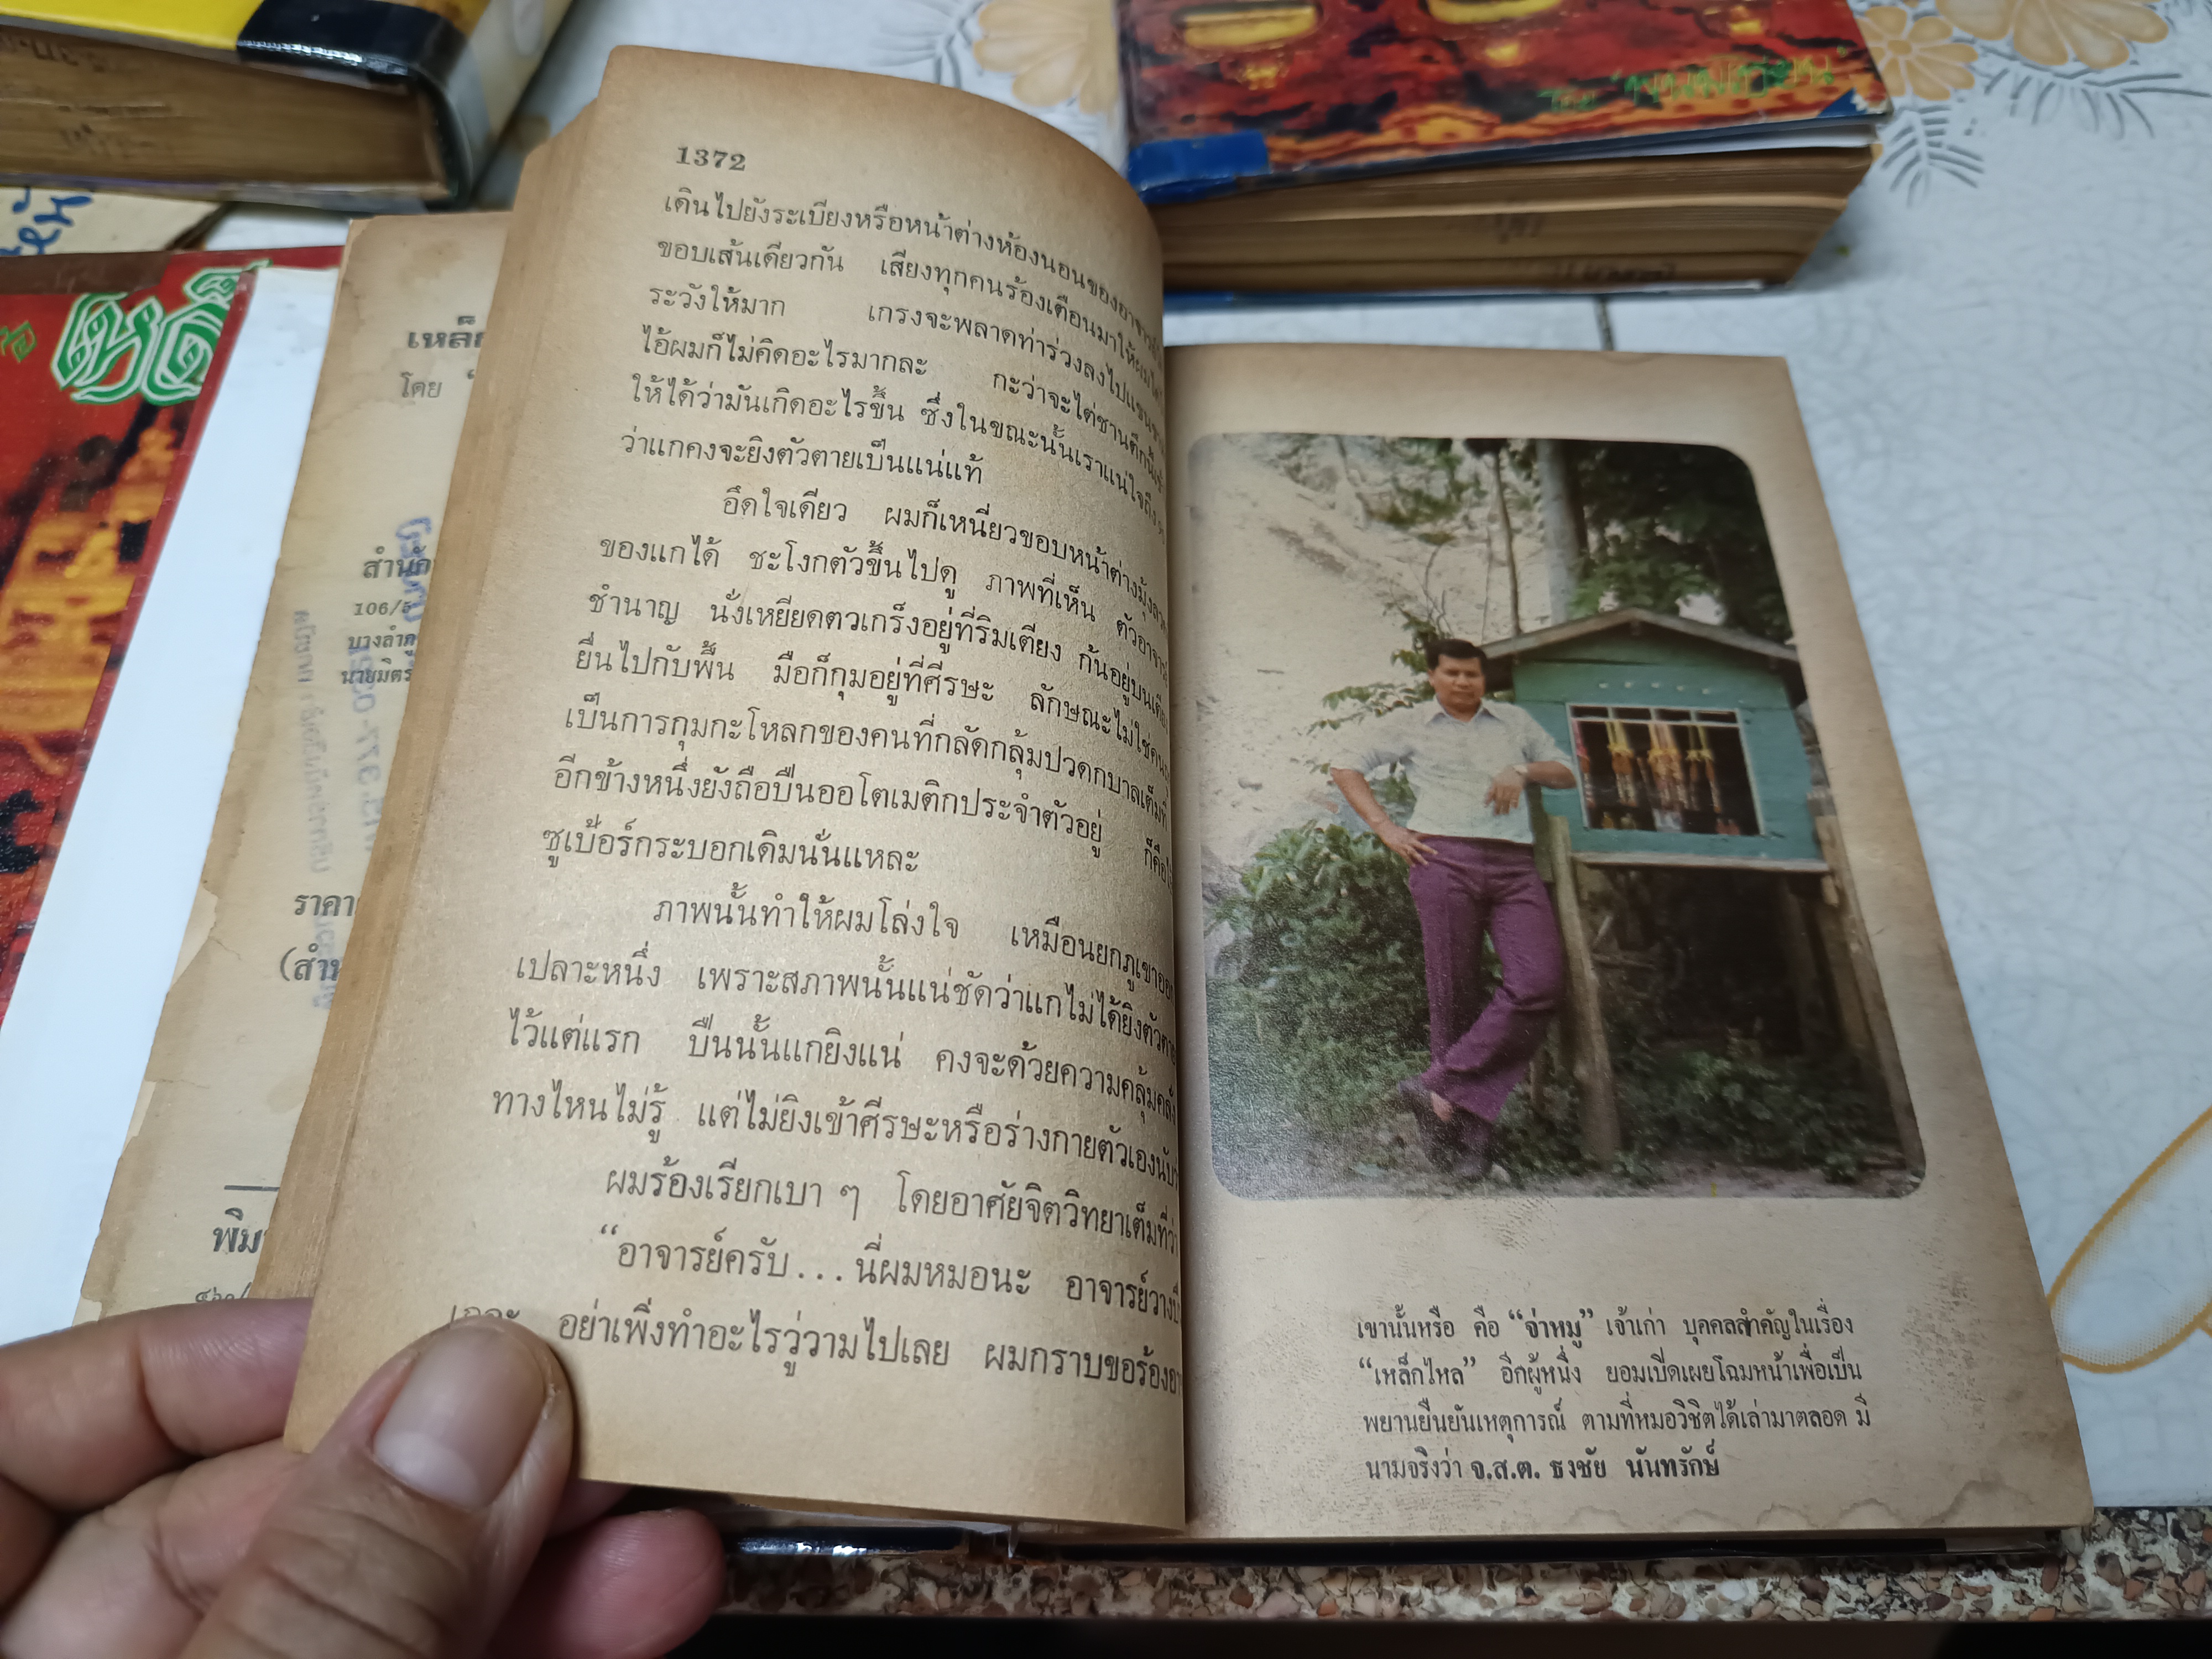 โดย "พนมเทียน"
เหล็
1372
เดินไปยังระเบียงหรือหน้าต่างห้องนอนของ
ขอบเส้นเดียวกัน เสียงทุกคนร้องเตือนมาให้ผม
ระวังให้มาก เกรงจะพลาดท่าร่วงลงไป
ไอ้ผมก็ไม่คิดอะไรมากละ กะว่าจะไต่ชานตึกนั้น
ให้ได้ว่ามันเกิดอะไรขึ้น ซึ่งในขณะนั้นเราแน่ใจถึง
ว่าแกคงจะยิงตัวตายเป็นแน่แท้
อึดใจเดียว ผมก็เหนี่ยวขอบหน้าต่างมุ้งลวด
ของแกได้ ชะโงกตัวขึ้นไปดู ภาพที่เห็น ตัวอาจารย์
ชำนาญ นั่งเหยียดตวเกร็งอยู่ที่ริมเตียง ก้นอยู่บนเตียง
ยื่นไปกับพื้น มือก็กุมอยู่ที่ศีรษะ ลักษณะไม่ใช่คน
เป็นการกุมกะโหลกของคนที่กลัดกลุ้มปวดกบาลเต็มที่
อีกข้างหนึ่งยังถือปืนออโตเมติกประจำตัวอยู่ ก็คือ
ซูเป้อร์กระบอกเดิมนั่นแหละ
ภาพนั้นทำให้ผมโล่งใจ เหมือนยกภูเขาออก
เปลาะหนึ่ง เพราะสภาพนั้นแน่ชัดว่าแกไม่ได้ยิงตัวตาย
ไว้แต่แรก ปืนนั้นแกยิงแน่ คงจะด้วยความคลุ้มคลั่ง
ทางไหนไม่รู้ แต่ไม่ยิงเข้าศีรษะหรือร่างกายตัวเองนับ
ผมร้องเรียกเบา ๆ โดยอาศัยจิตวิทยาเต็มที่ว่า
“อาจารย์ครับ...นี่ผมหมอนะ อาจารย์วาง
อย่าเพิ่งทำอะไรวู่วามไปเลย ผมกราบขอร้อง
เหล็
โดย "
สำนัก
106/5
บางลำภู
นายมิตร
ราคา
(สำ
พิม
เขานั้นหรือ คือ “จ่าหมู” เจ้าเก่า บุคคลสำคัญในเรื่อง
“เหล็กไหล” อีกผู้หนึ่ง ยอมเปิดเผยโฉมหน้าเพื่อเป็น
พยานยืนยันเหตุการณ์ ตามที่หมอวิชิตได้เล่ามาตลอด มี
นามจริงว่า จ.ส.ต. ธงชัย นันทรักษ์